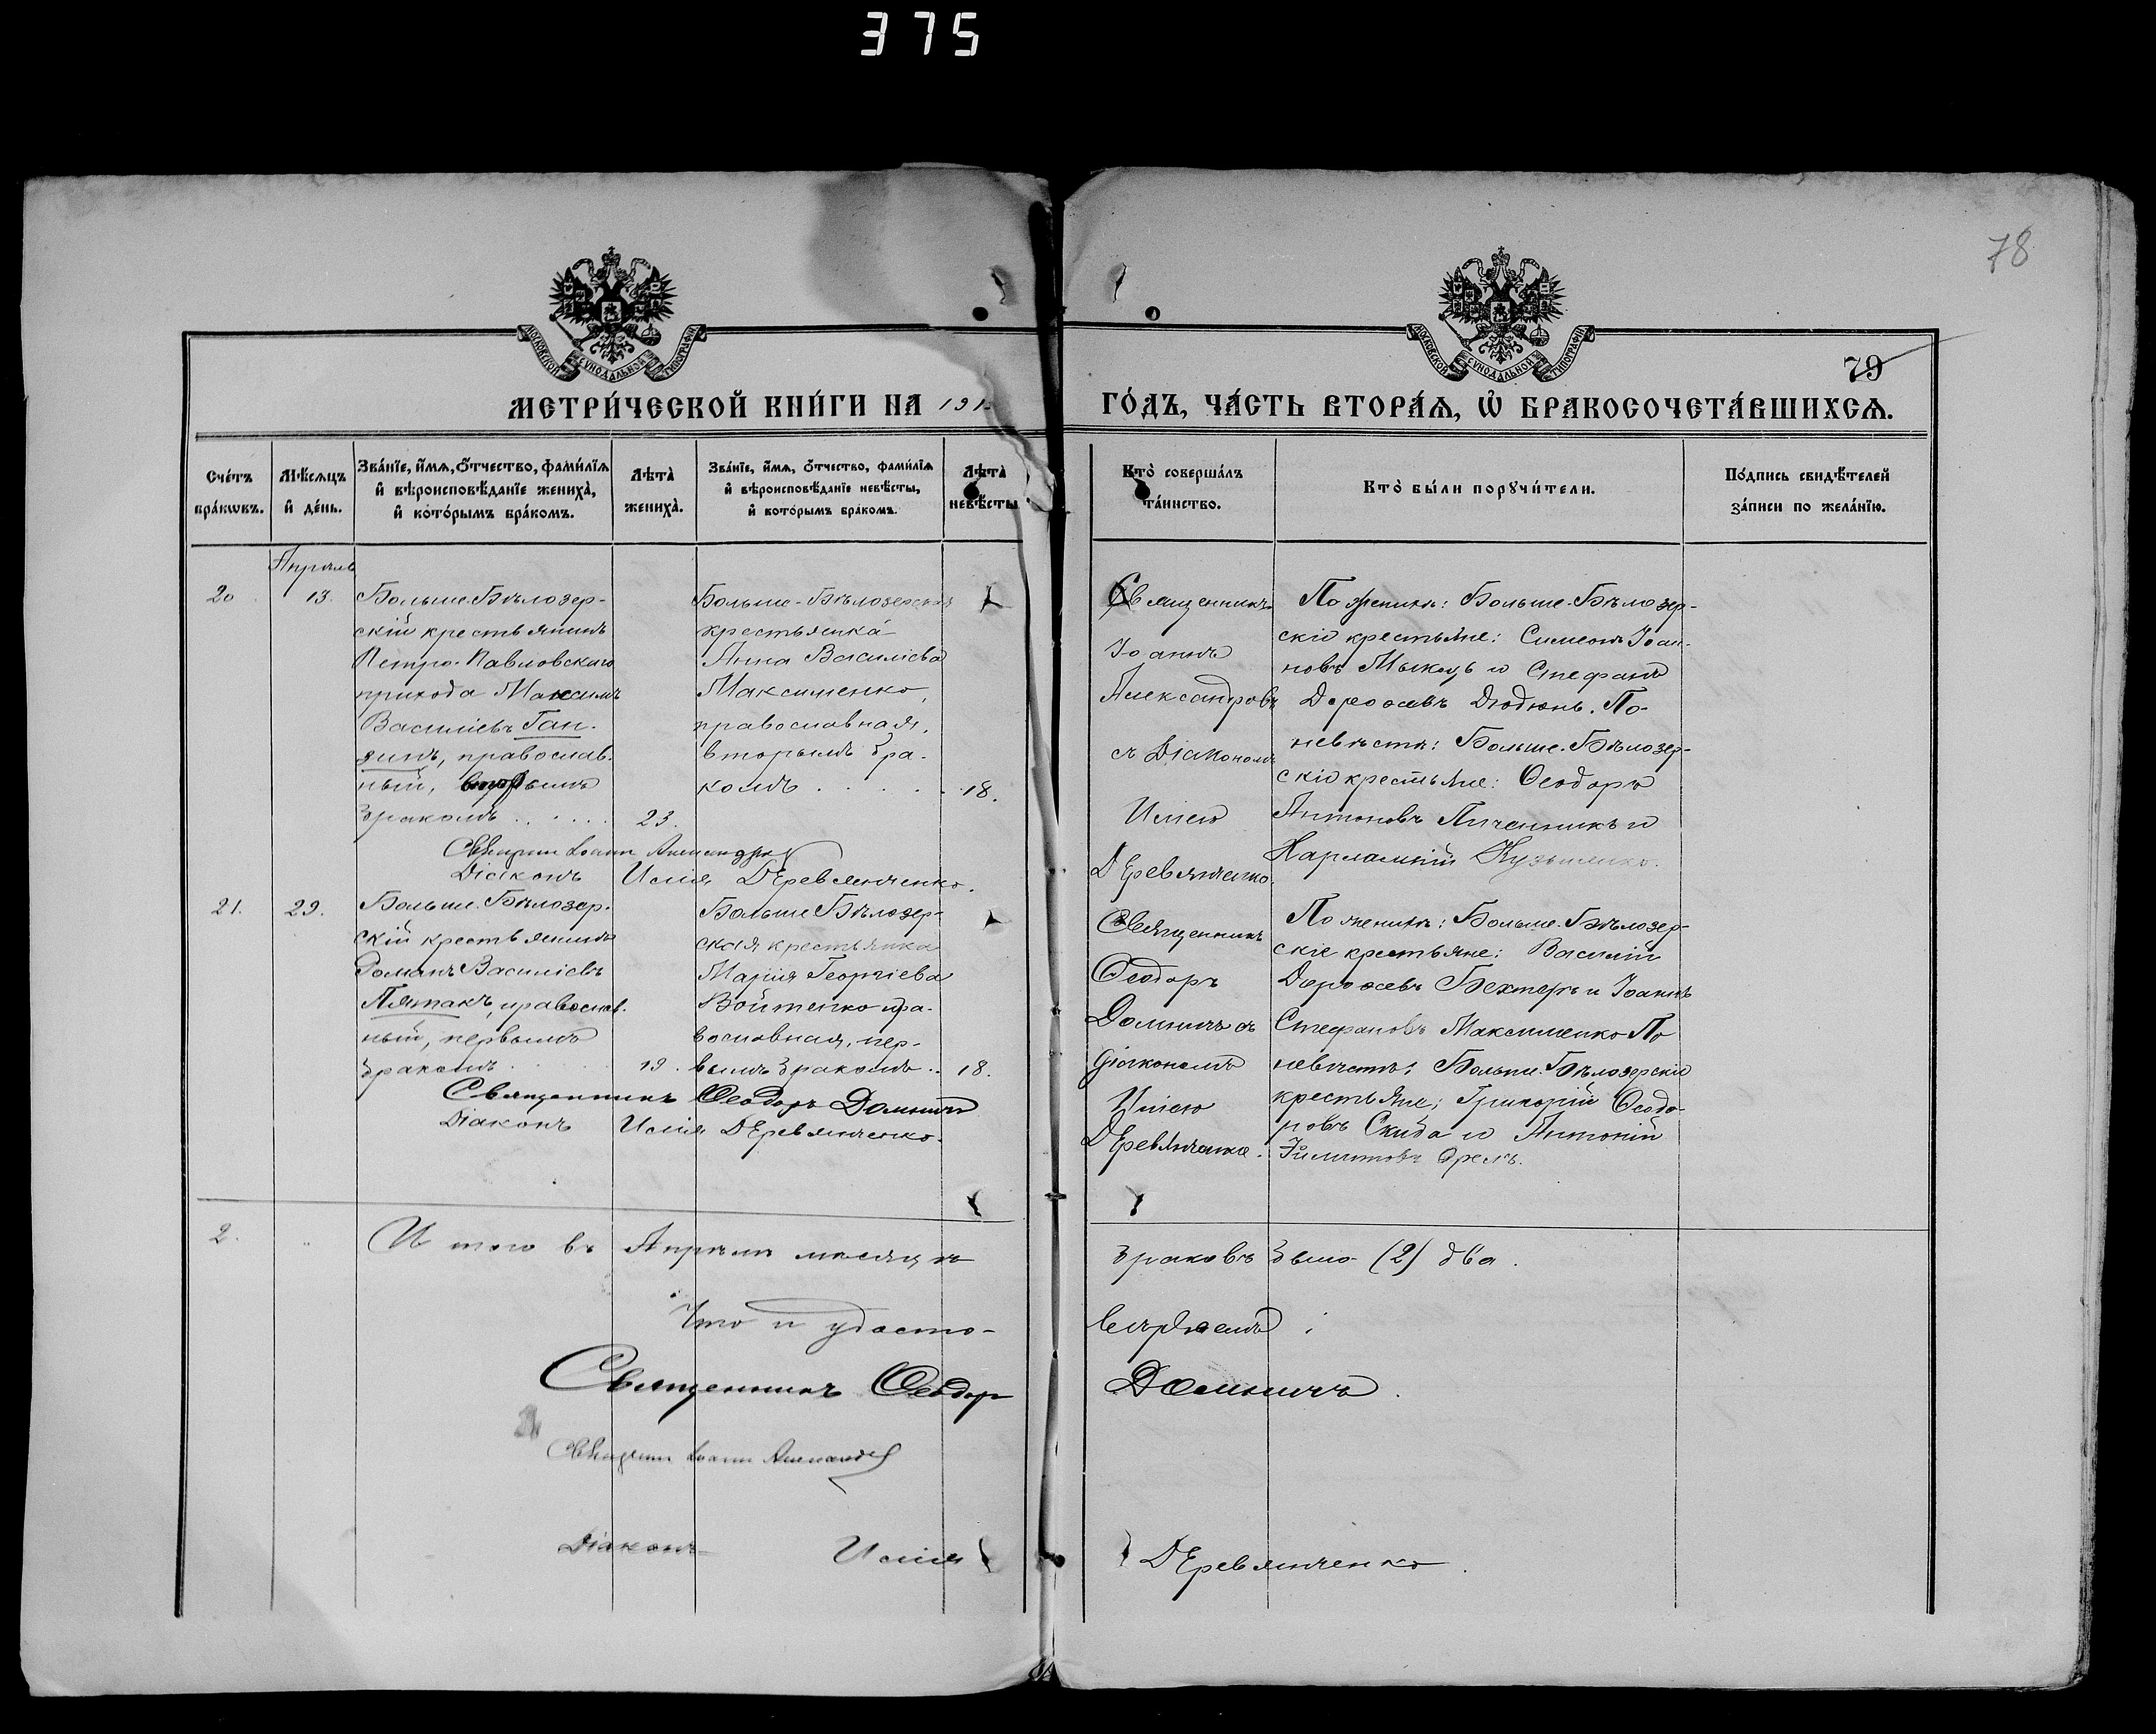 375
78
МОСКОВСКОЙ СѴНОДАЛЬНОЙ ТИПОГРАФІИ
МОСКОВСКОЙ СѴНОДАЛЬНОЙ ТИПОГРАФІИ
79
МЕТРИ́ЧЕСКОЙ КНИ́ГИ НА 191
ГО́ДЪ, ЧА́СТЬ ВТОРА́Ѧ, Ѽ БРАКОСОЧЕТА́ВШИХСѦ.
Сче́тъ бра́кѡвъ.
Мѣ́сѧцъ и҆ де́нь.
Зва́нїе, и҆́мѧ, ѻ҆́тчество, фами́лїѧ
и҆ вѣроисповѣ́данїе жениха̀,
и҆ кото́рымъ бра́комъ.
Лѣта̀ жениха̀.
Зва́нїе, и҆́мѧ, ѻ҆́тчество, фами́лїѧ
и҆ вѣроисповѣ́данїе невѣ́сты,
и҆ кото́рымъ бра́комъ.
Лѣта̀ невѣ́сты
Кто̀ соверша́лъ
та́инство.
Кто̀ бы́ли порꙋчи́тели.
По́дпись свидѣ́телей
за́писи по жела́нїю.
Апрѣль
20
13.
Больше-Бѣлозер-
скій крестьянинъ
Петро-Павловскаго
прихода Максимъ
Василіевъ Ган-
динъ, православ-
ный, вторымъ
бракомъ
23.
Больше-Бѣлозерская
крестьянка
Анна Василіева
Максименко,
православная,
вторымъ бра-
комъ
18.
Священникъ
Іоаннъ
Александровъ
съ Діакономъ
Иліею
Деревянченко.
По женихѣ: Больше-Бѣлозер-
скіе крестьяне: Симеонъ Іоан-
новъ Мыкоць и Стефанъ
Дороѳеевъ Дюдюнь. По
невѣстѣ: Больше-Бѣлозер-
скіе крестьяне: Ѳеодоръ
Антоновъ Пичанникъ и
Харлампій Кузьменко.
Священникъ Іоаннъ Александровъ
Діаконъ Илія Деревянченко.
21.
29.
Больше-Бѣлозер-
скій крестьянинъ
Романъ Василіевъ
Пятакъ, православ-
ный, первымъ
бракомъ
19.
Больше-Бѣлозер-
ская крестьянка
Марія Георгіева
Войтенко пра-
вославная, пер-
вымъ бракомъ
18.
Священникъ
Ѳеодоръ
Домничъ съ
діакономъ
Иліею
Деревянченко.
По женихѣ: Больше-Бѣлозер-
скіе крестьяне: Василій
Дороѳеевъ Бехтеръ и Іоаннъ
Стефановъ Максименко По
невѣстѣ: Больше-Бѣлозерскіе
крестьяне: Григорій Ѳеодо-
ровъ Скида и Антоній
Орелъ.
Священникъ Ѳеодоръ Домничъ
Діаконъ Илія Деревянченко.
2.
Итого въ Апрѣлѣ мѣсяцѣ
браковъ было (2) два.
Что и удосто-
вѣряемъ:
Священникъ Ѳеодоръ
Домничъ.
Священникъ Іоаннъ Александровъ
Діаконъ Илія
Деревянченко.